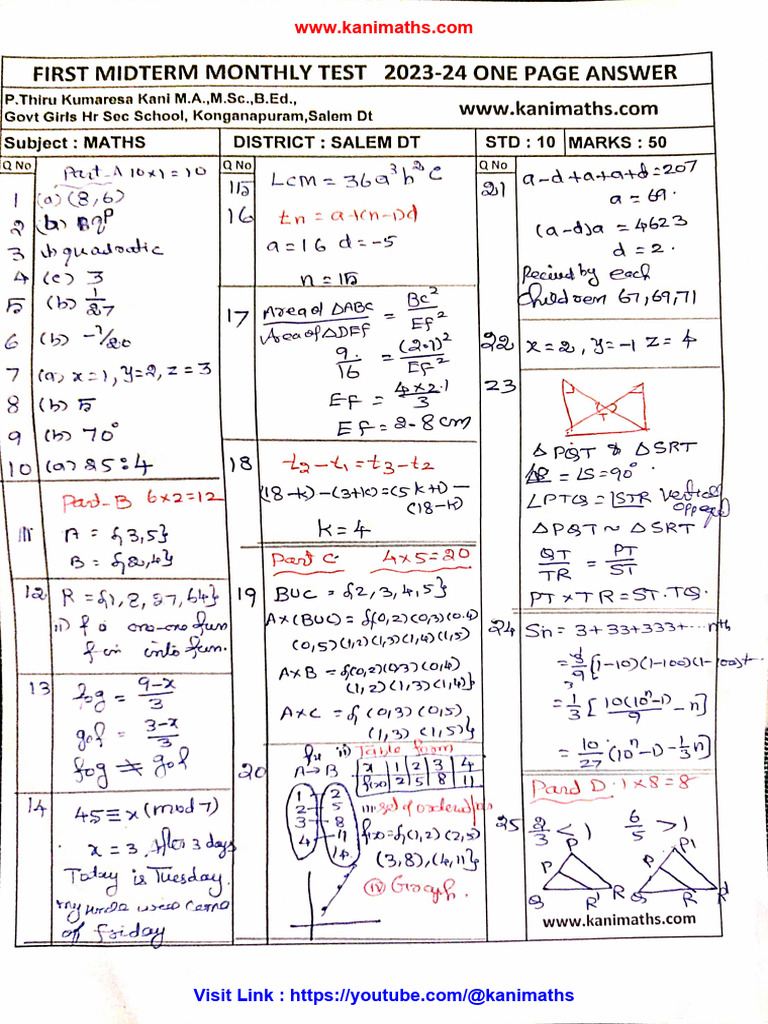 www.kanimaths.com
FIRST MIDTERM MONTHLY TEST 2023-24 ONE PAGE ANSWER
P.Thiru Kumaresa Kani M.A.,M.Sc.,B.Ed.,
Govt Girls Hr Sec School, Konganapuram,Salem Dt
www.kanimaths.com
Subject : MATHS
DISTRICT : SALEM DT
STD : 10
MARKS : 50
Q No
Part-A 10x1=10
1 (a) (8,6)
2 (b)
3 quadratic
4 (c) 3
5 (b) 1/27
6 (b) -7/20
7 (a) x=1, y=2, z=3
8 (b) 5
9 (b) 70°
10 (a) 25:4
Part-B 6x2=12
11 A = {3,5}
B = {2,4}
12 R = {1, 8, 27, 64}
ii) f is one-one fun
f is into fun.
13 fog = 9-x/3
gof = 3-x/3
fog ≠ gof
14 45 ≡ x (mod 7)
x = 3. After 3 days
Today is Tuesday.
My uncle will come
of Friday
Q No
15 LCM = 36a³b²c
16 tn = a+(n-1)d
a=16 d=-5
n=15
17 Area of ΔABC / Area of ΔDEF = BC²/EF²
9/16 = (2.1)²/EF²
EF = 4x2.1/3
EF = 2.8 cm
18 t2-t1 = t3-t2
(18-k)-(3+k) = (5k+1)-
(18-k)
k=4
Part C 4x5=20
19 BUC = {2,3,4,5}
Ax(BUC) = {(0,2)(0,3)(0,4)
(0,5)(1,2)(1,3)(1,4)(1,5)}
AxB = {(0,2)(0,3)(0,4)
(1,2)(1,3)(1,4)}
AxC = {(0,3)(0,5)
(1,3)(1,5)}
20 ii) Table form
A→B
x 1 2 3 4
f(x) 2 5 8 11
1 2
2 5
3 8
4 11
14
iii) set of ordered pair
f(x)={(1,2)(2,5)
(3,8),(4,11)}
(iv) Graph.
Q No
21 a-d+a+a+d=207
a=69.
(a-d)a = 4623
d=2.
Recived by each
children 67,69,71
22 x=2, y=-1 z=4
23
T
ΔPQT & ΔSRT
= ∠S=90°.
∠PTQ = ∠STR Vertical
opposed
ΔPQT ~ ΔSRT
QT/TR = PT/ST
PT x TR = ST.TQ.
24 Sn = 3+33+333+...nth
= 3/9 [(10-1)(100-1)...
= 1/3 [10(10ⁿ-1)/9 - n]
= 10/27 (10ⁿ-1) - 1/3 n]
Pard D. 1x8=8
25 2/3 < 1 6/5 > 1
P P1
P P
Q R' R Q R R'
www.kanimaths.com
Visit Link : https://youtube.com/@kanimaths